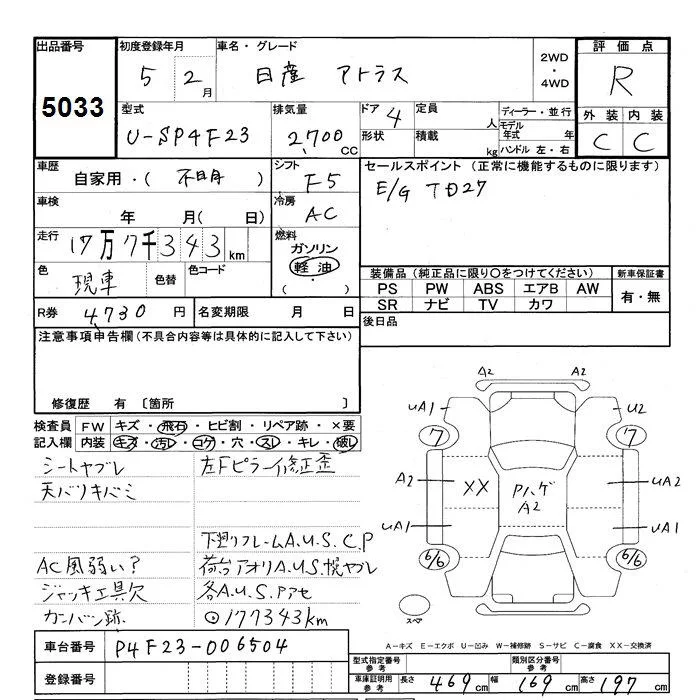 出品番号 初度登録年月 車名・グレード 2WD ・ 4WD 評価点
5033 5 2月 日産 アトラス R
型式 排気量 ドア 4 定員 人 ディーラー・並行 外装 内装
U-SP4F23 2,700 CC 形状 積載 kg モデル年式 年 ハンドル 左・右 C C
車歴 自家用・( 不明 ) シフト F5 セールスポイント(正常に機能するものに限ります)
車検 年 月( 日) 冷房 AC E/G TD27
走行 17万7千343km 燃料 ガソリン 軽油 ( ・ )
色 現車 色替 色コード 装備品(純正品に限り○をつけてください) 新車保証書
PS PW ABS エアB AW 有・無
SR ナビ TV カワ
R券 4,730円 名変期限 月 日 後日品
注意事項申告欄(不具合内容等は具体的に記入して下さい)
修復歴 有 〔箇所 〕
検査員 FW キズ・飛石・ヒビ割・リペア跡・×要
記入欄 内装 キズ・汚レ・コゲ・穴・スレ・キレ・破レ
シートヤブレ 左Fピラー修正歪
天バリキバミ
下廻リフレームA.U.S.C.P
AC風弱い? 荷台アオリA.U.S.幌ヤブレ
ジャッキ工具欠 各A.U.S.Pアセ
カンバン跡 ⊙177343km
A2 A2
UA1 U2
7 7
A2 XX Pハゲ A2 UA2
UA1 UA1
6/6 6/6
スペア
A-キズ E-エクボ U-凹み W-補修跡 S-サビ C-腐食 XX-交換済
車台番号 P4F23-006504
登録番号
型式指定番号 参考 類別区分番号 参考
車庫証明用 参考 長さ 469cm 幅 169cm 高さ 197cm